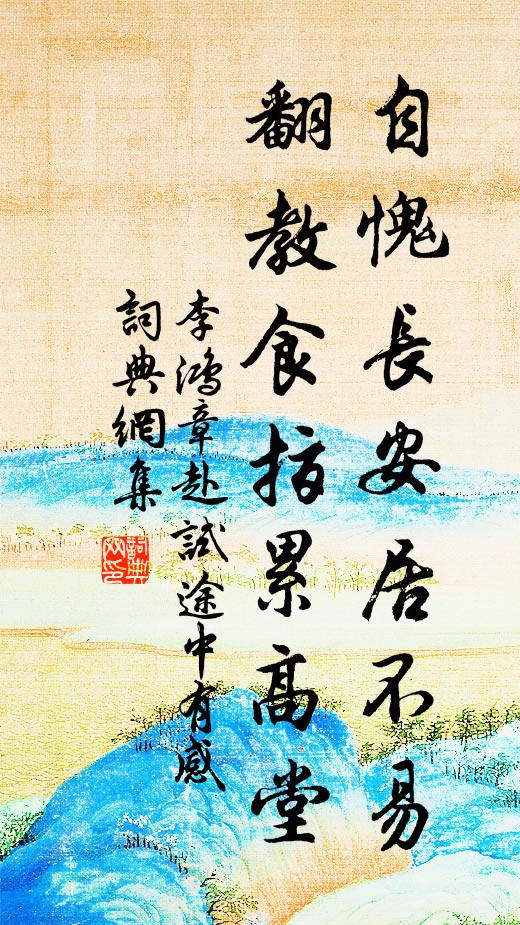 自愧長安居不易
翻教食指累高堂
李鴻章赴試途中有感
詞典網集